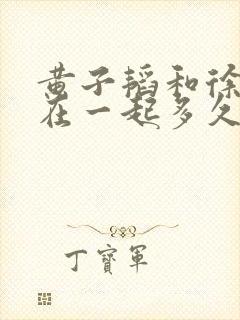 黄子韬和徐
在一起多久
丁寶軍